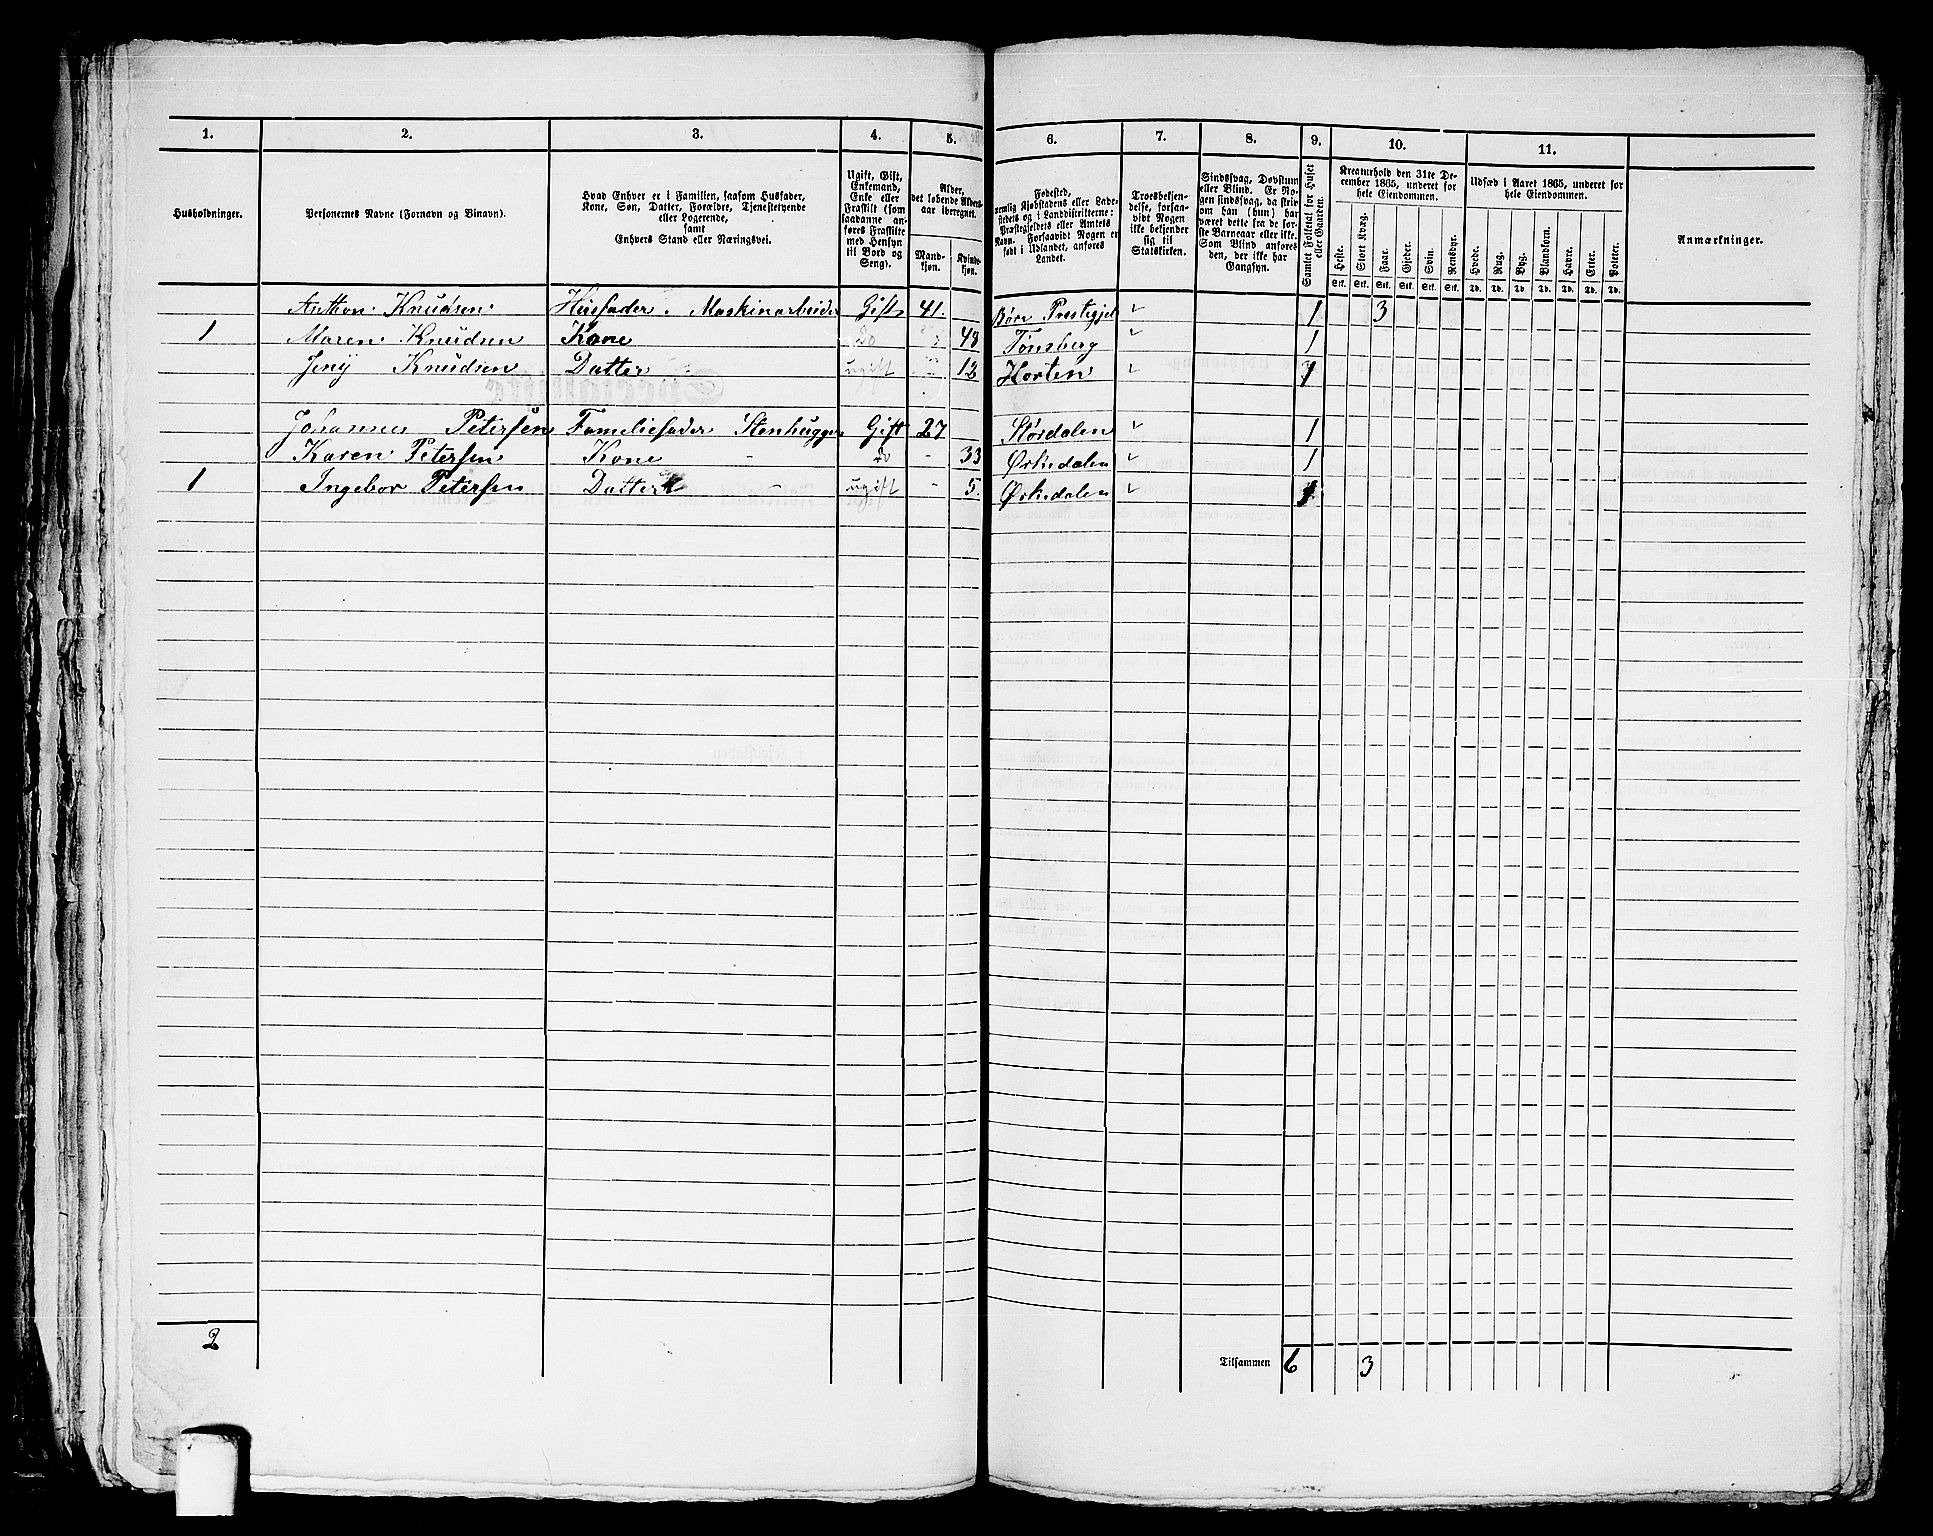 1. 2. 3. 4. 5. 6. 7. 8. 9. 10. 11.
Husholdninger.
Personernes Navne (Fornavn og Binavn).
Hvad Enhver er i Familien, saasom Husfader,
Kone, Søn, Datter, Forældre, Tjenestetyende
eller Logerende,
samt
Enhvers Stand eller Næringsvei.
Ugift, Gift,
Enkemand,
Enke eller
Fraskilt (som
saadanne an-
føres Fraskilte
med Hensyn
til Bord og
Seng).
Alder,
det løbende Alders-
aar iberegnet.
Mand-
kjøn.
Kvinde-
kjøn.
Fødested,
nemlig Kjøbstadens eller Lade-
stedets og i Landdistrikterne:
Præstegjeldets eller Amtets
Navn. Forsaavidt Nogen er
født i Udlandet, anføres
Landet.
Troesbekjen-
delse, forsaa-
vidt Nogen
ikke bekjender
sig til
Statskirken.
Sindssvag, Døvstum
eller Blind. Er No-
gen sindssvag, da skri-
om han (hun) har
været dette fra de før-
ste Barneaar eller ikke.
Som Blind anføres
den, der ikke har
Gangsyn.
Samlet Folketal for Huset
eller Gaarden.
Kreaturhold den 31te De-
cember 1865, underet for
hele Eiendommen.
Heste. Stort Kvæg. Faar. Gjeder. Svin. Rensdyr.
Stk. Stk. Stk. Stk. Stk. Stk.
Udsæd i Aaret 1865, underet for
hele Eiendommen.
Hvede. Rug. Byg. Blandkorn. Havre. Erter. Poteter.
Td. Td. Td. Td. Td. Td. Td.
Anmærkninger.
Antton Knudsen Husfader. Maskinarbeider Gift 41. Prestegjel 1 3
1 Maren Knudsen Kone Do 48 Tønsberg 1
Jeny Knudsen Datter ugift 12 Horten 1
Johannes Petersen Familiefader Stenhugger Gift 27 Størdalen 1
Karen Petersen Kone Do 33 Ørkedalen 1
1 Ingebor Petersen Datter ugift 5. Ørkedalen 1
2 Tilsammen 6 3